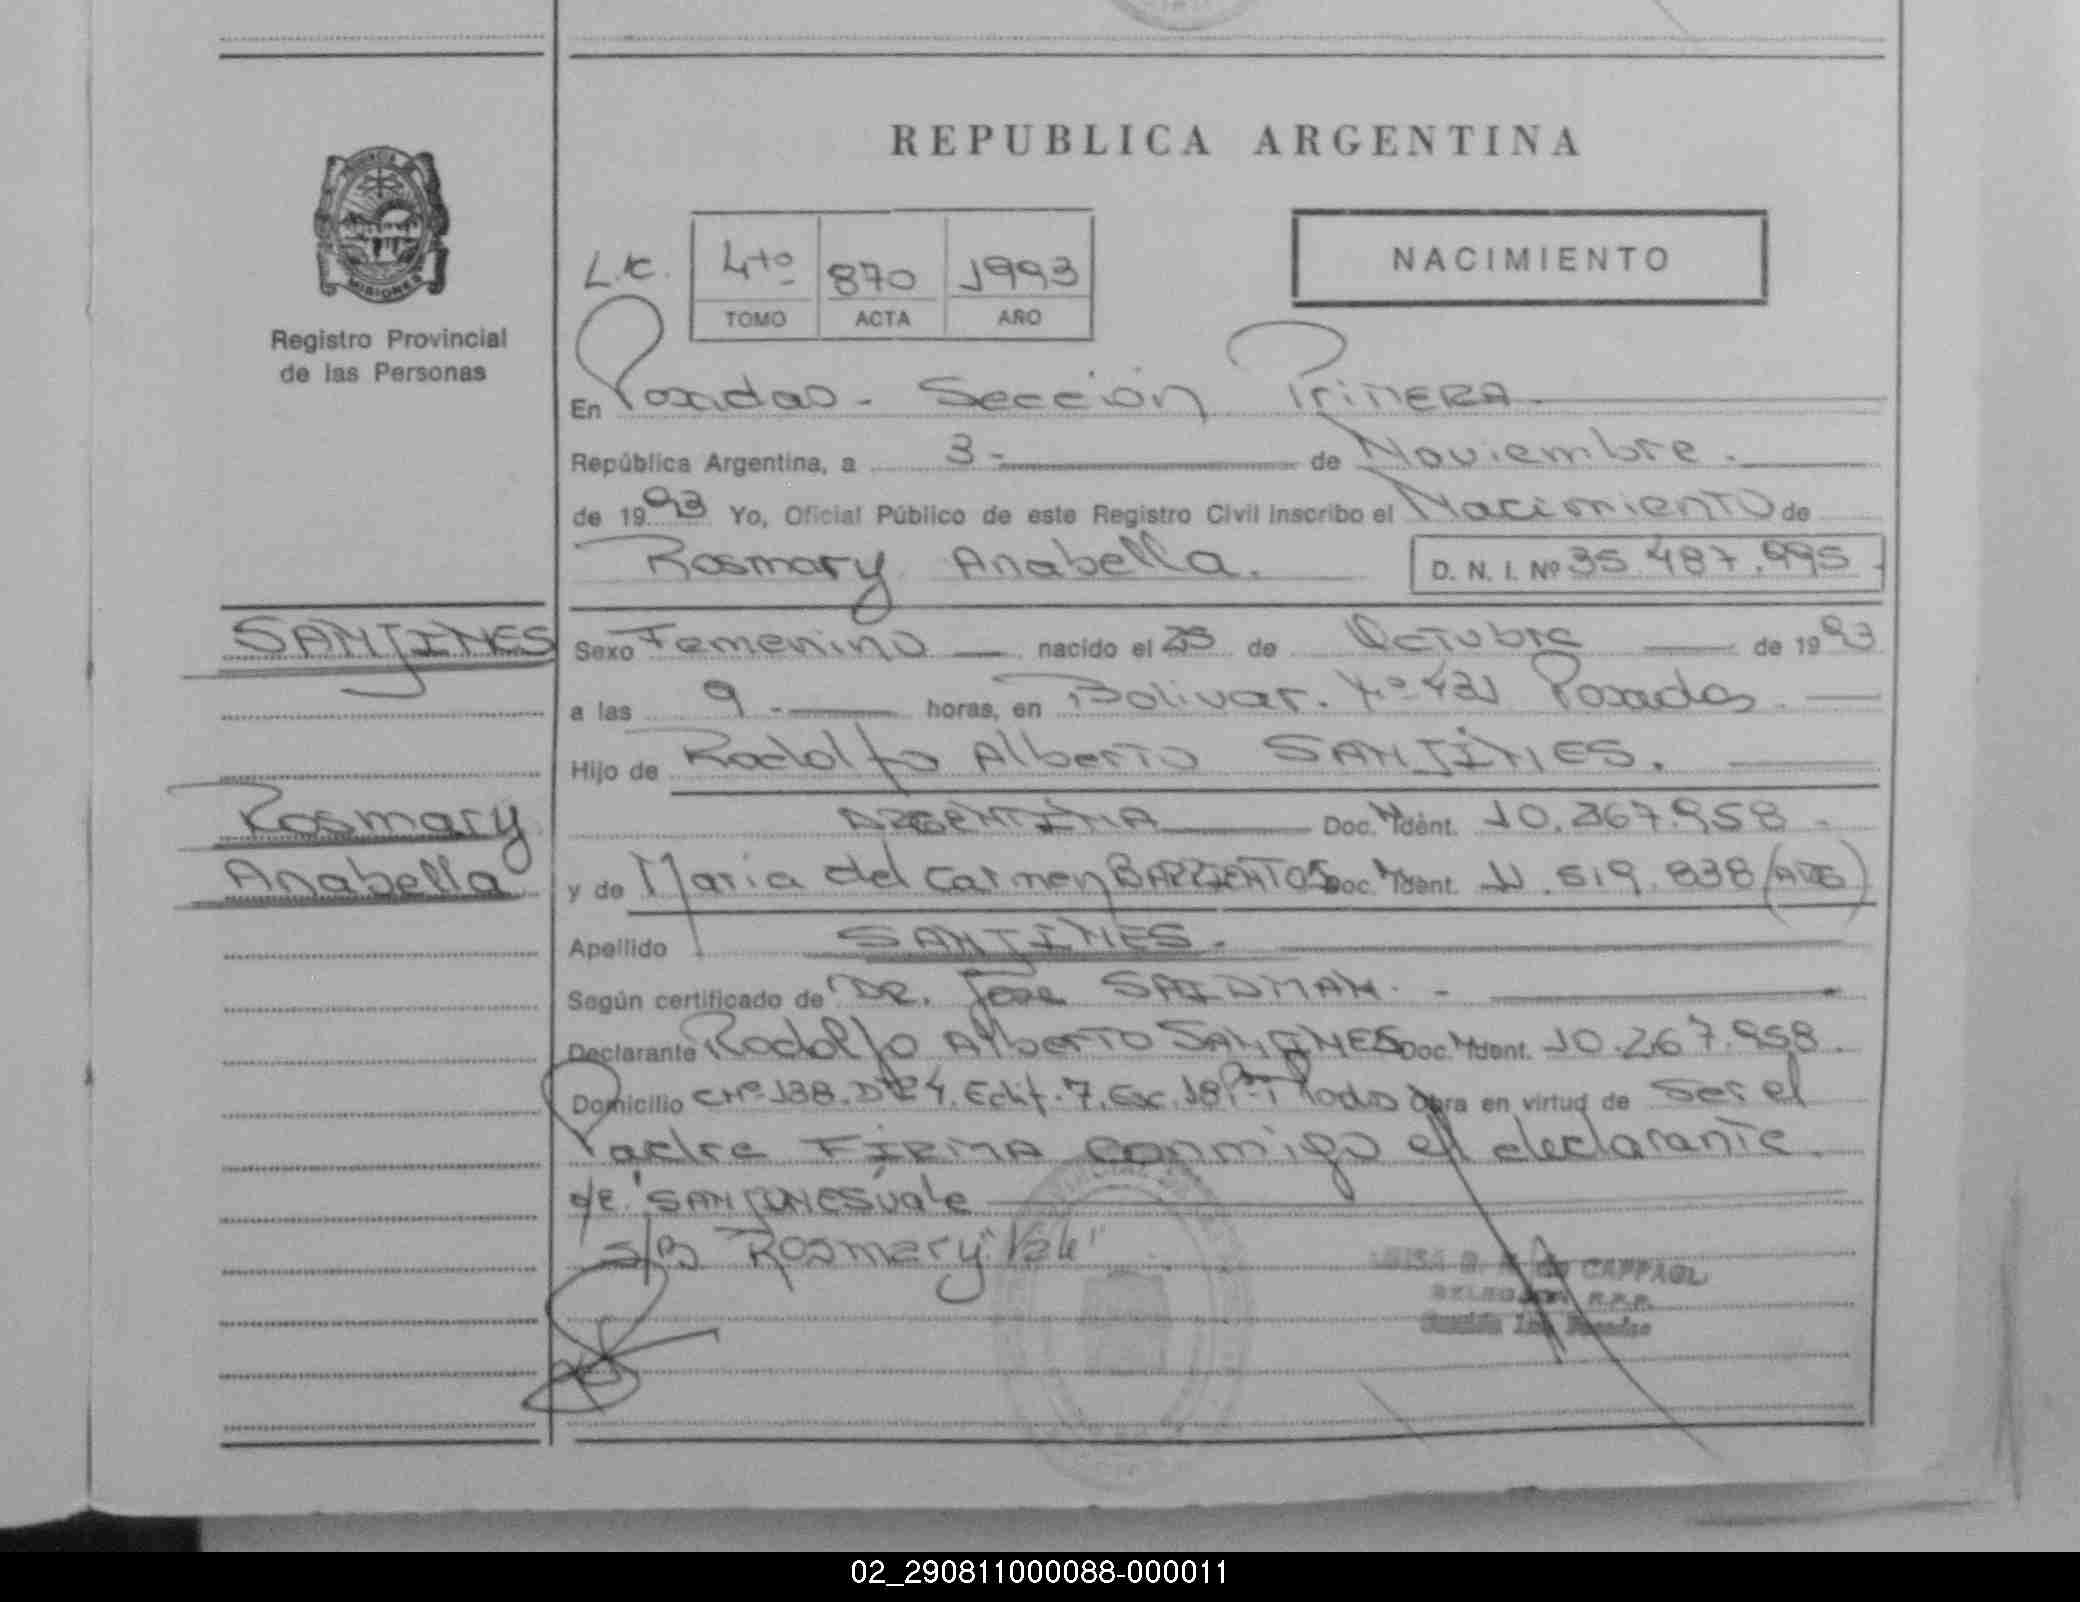 REPUBLICA ARGENTINA
NACIMIENTO
L.C.
4to 870 1993
TOMO ACTA AÑO
MISIONES
Registro Provincial
de las Personas
En Posadas - Sección Primera
República Argentina, a 3 - de Noviembre.
de 1993 Yo, Oficial Público de este Registro Civil inscribo el Nacimiento de
Rosmary Anabella. D. N. I. Nº 35.487.995
SANJINES
Sexo Femenino nacido el 25 de Octubre de 1993
a las 9 - horas, en Bolivar. Nº 421 Posadas
Hijo de Rodolfo Alberto SANJINES.
Rosmary
Anabella
ARGENTINA Doc. Ident. 10.267.958 -
y de Maria del Carmen BARRIENTOS Doc. Ident. 11.519.838 (ARG)
Apellido SANJINES -
Según certificado de DR. Jose SAIDMAN. -
Declarante Rodolfo Alberto SANJINES Doc. Ident. 10.267.958.
Domicilio CHº 138. Dtº 4. Edif. 7. Esc. 18 Posadas Obra en virtud de Ser el
Padre FIRMA conmigo el declarante.
s/e. "SANJINES vale
s/B Rosmary "Vale"
de CAPPAGLI
DELEGADA R.P.P.
Sección 1ra Posadas
02_290811000088-000011